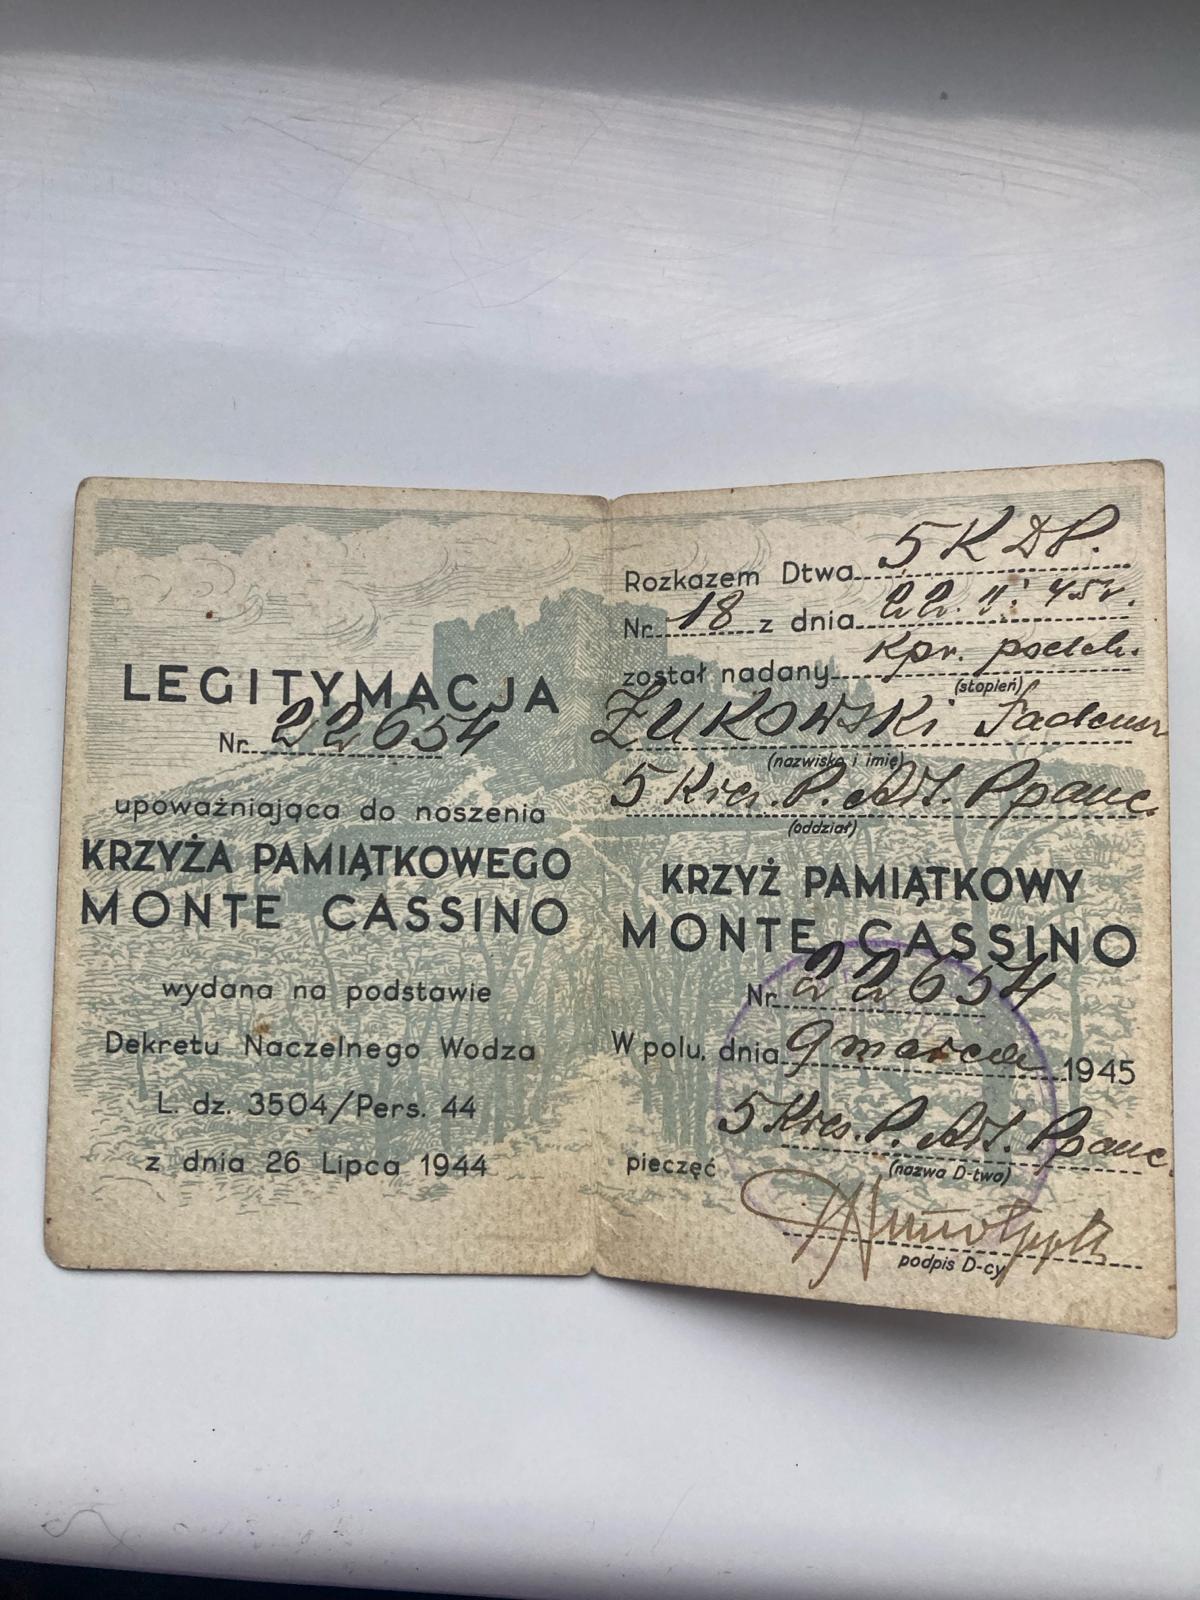 LEGITYMACJA
Nr. 22654
upoważniająca do noszenia
KRZYŻA PAMIĄTKOWEGO
MONTE CASSINO
wydana na podstawie
Dekretu Naczelnego Wodza
L. dz. 3504/Pers. 44
z dnia 26 Lipca 1944
Rozkazem Dtwa 5 K D P.
Nr. 18 z dnia 22. II. 45 r.
został nadany kpr. podch.
(stopień)
ŻUKOWSKI Tadeusz
(nazwisko i imię)
5 Kres. P. Art. Ppanc.
(oddział)
KRZYŻ PAMIĄTKOWY
MONTE CASSINO
Nr 22654
W polu, dnia 9 marca 1945
5 Kres. P. Art. Ppanc.
pieczęć (nazwa D-twa)
podpis D-cy